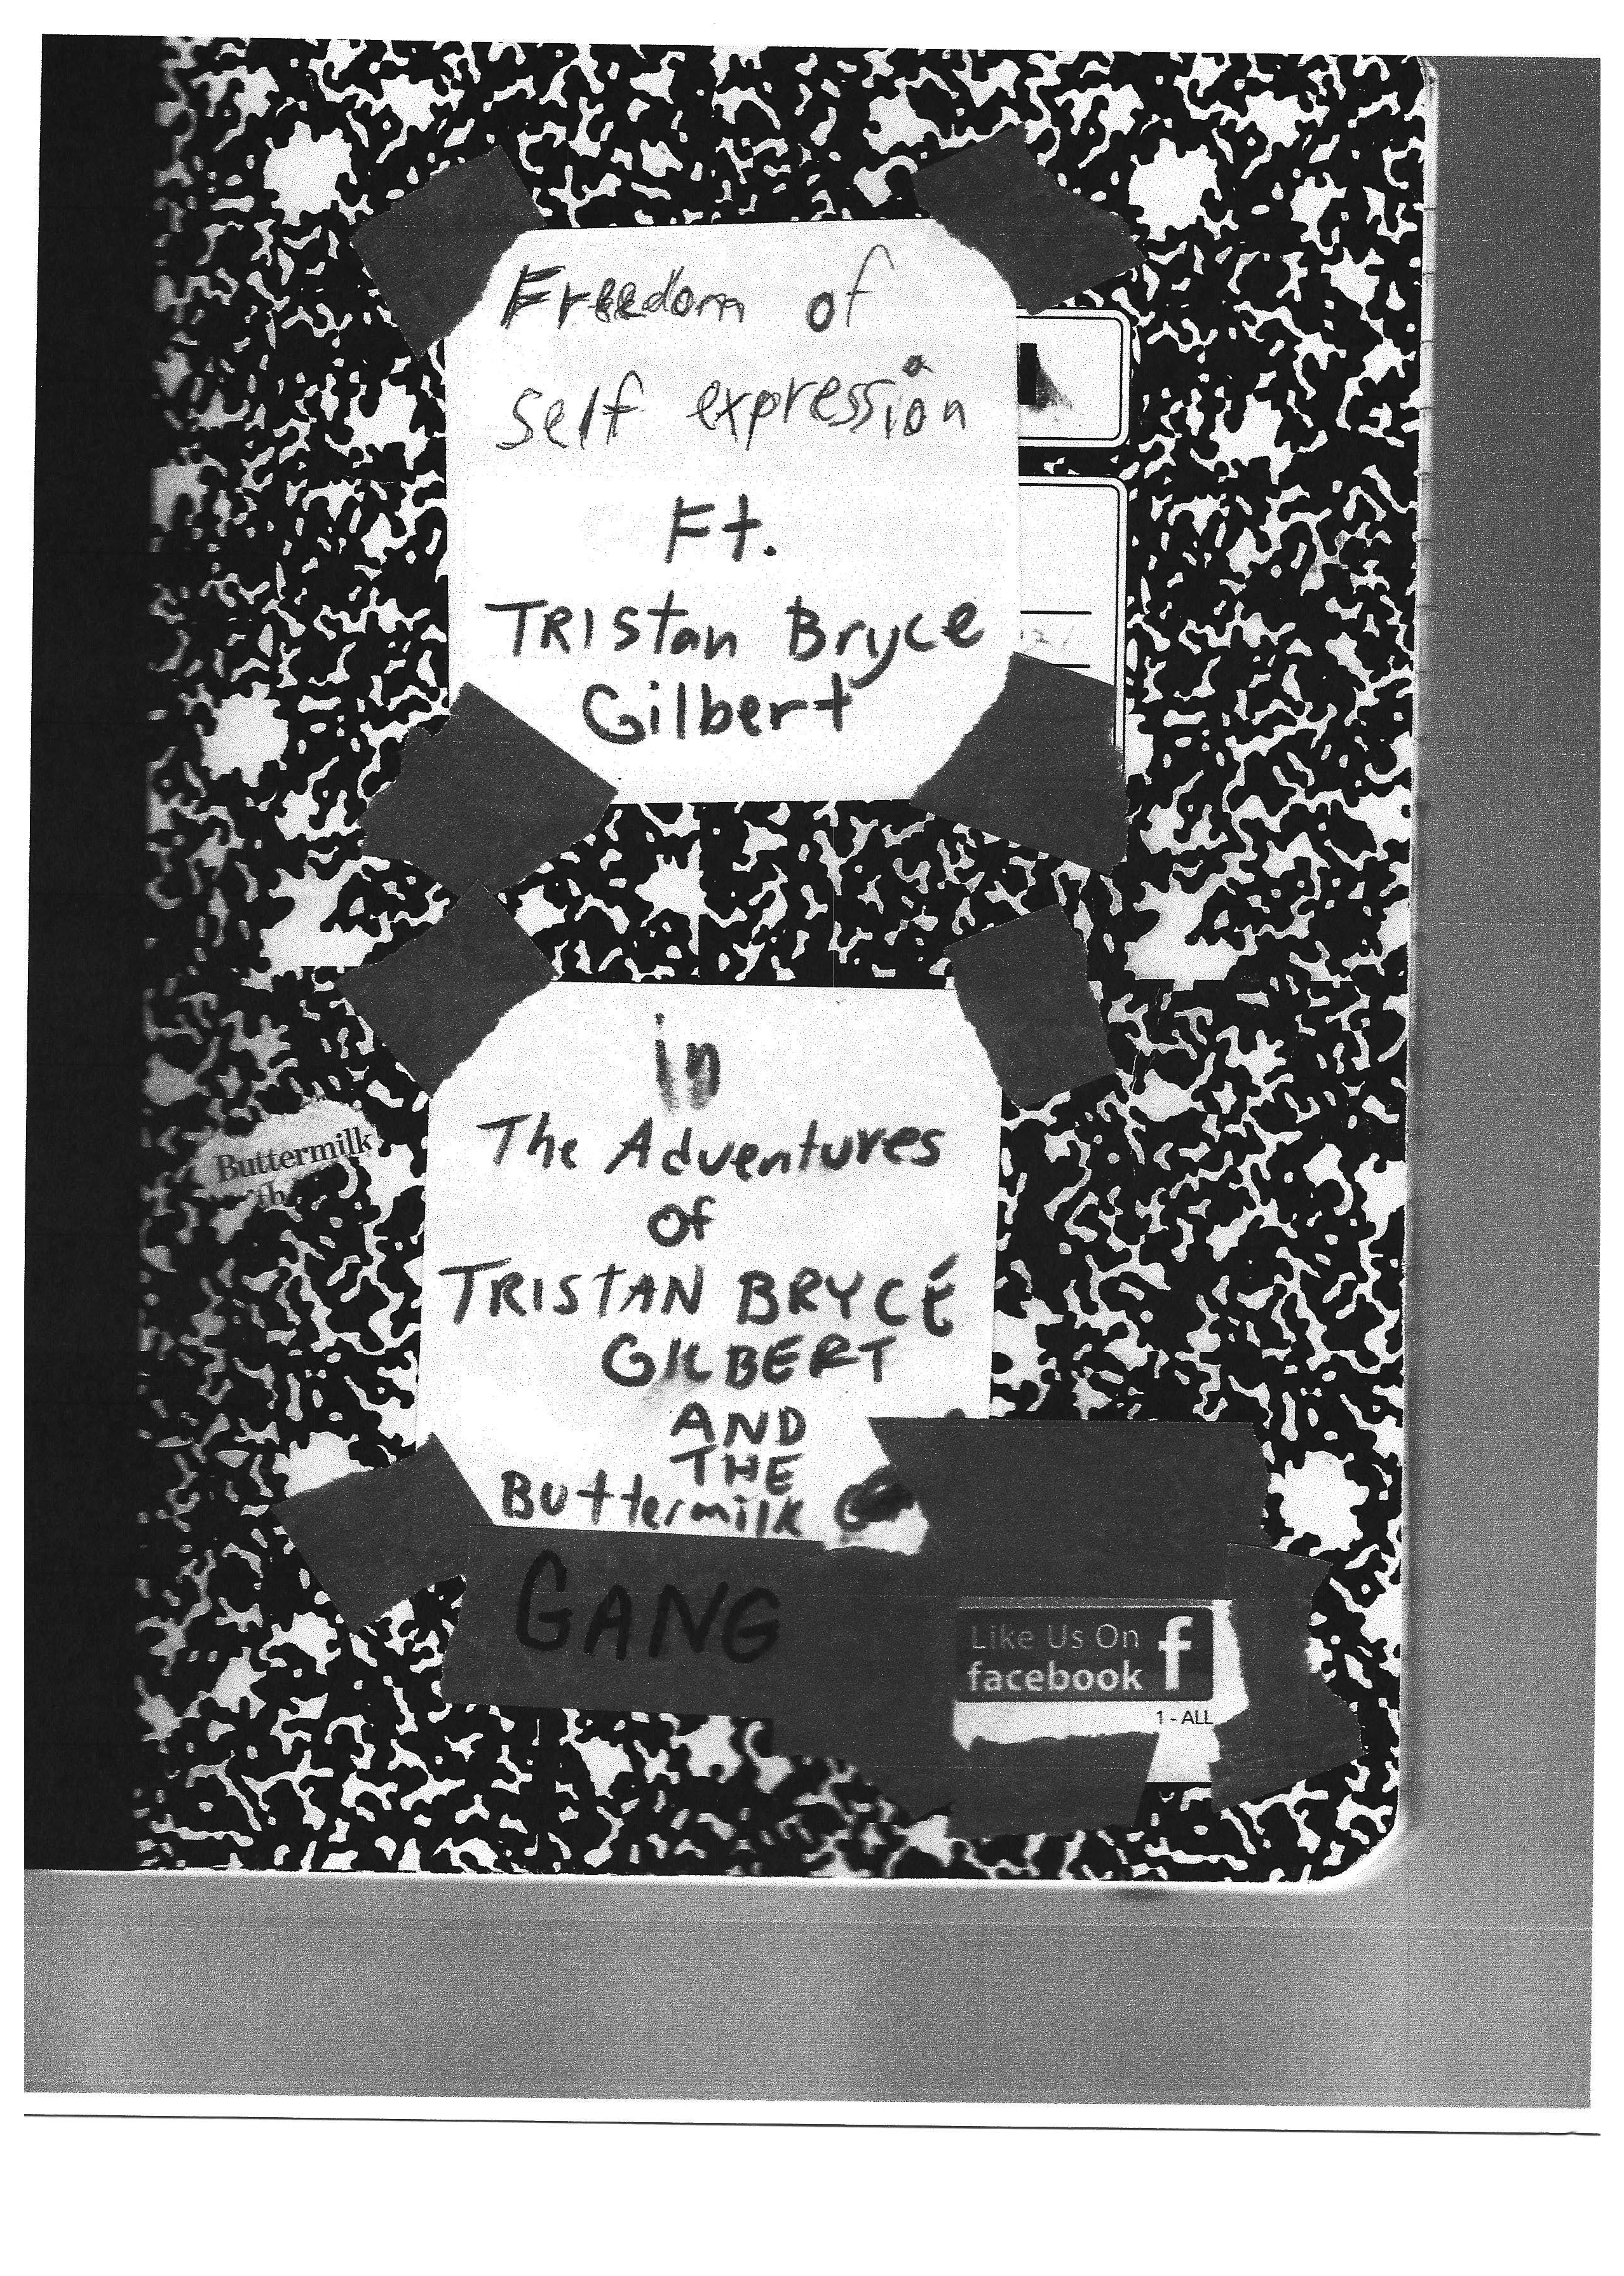 Freedom of
self expression
Ft.
TRIStan Bryce
Gilbert
in
The Adventures
of
TRISTAN BRYCE
GILBERT
AND
THE
Buttermilk
GANG
Buttermilk
Like Us On
facebook f
1 - ALL